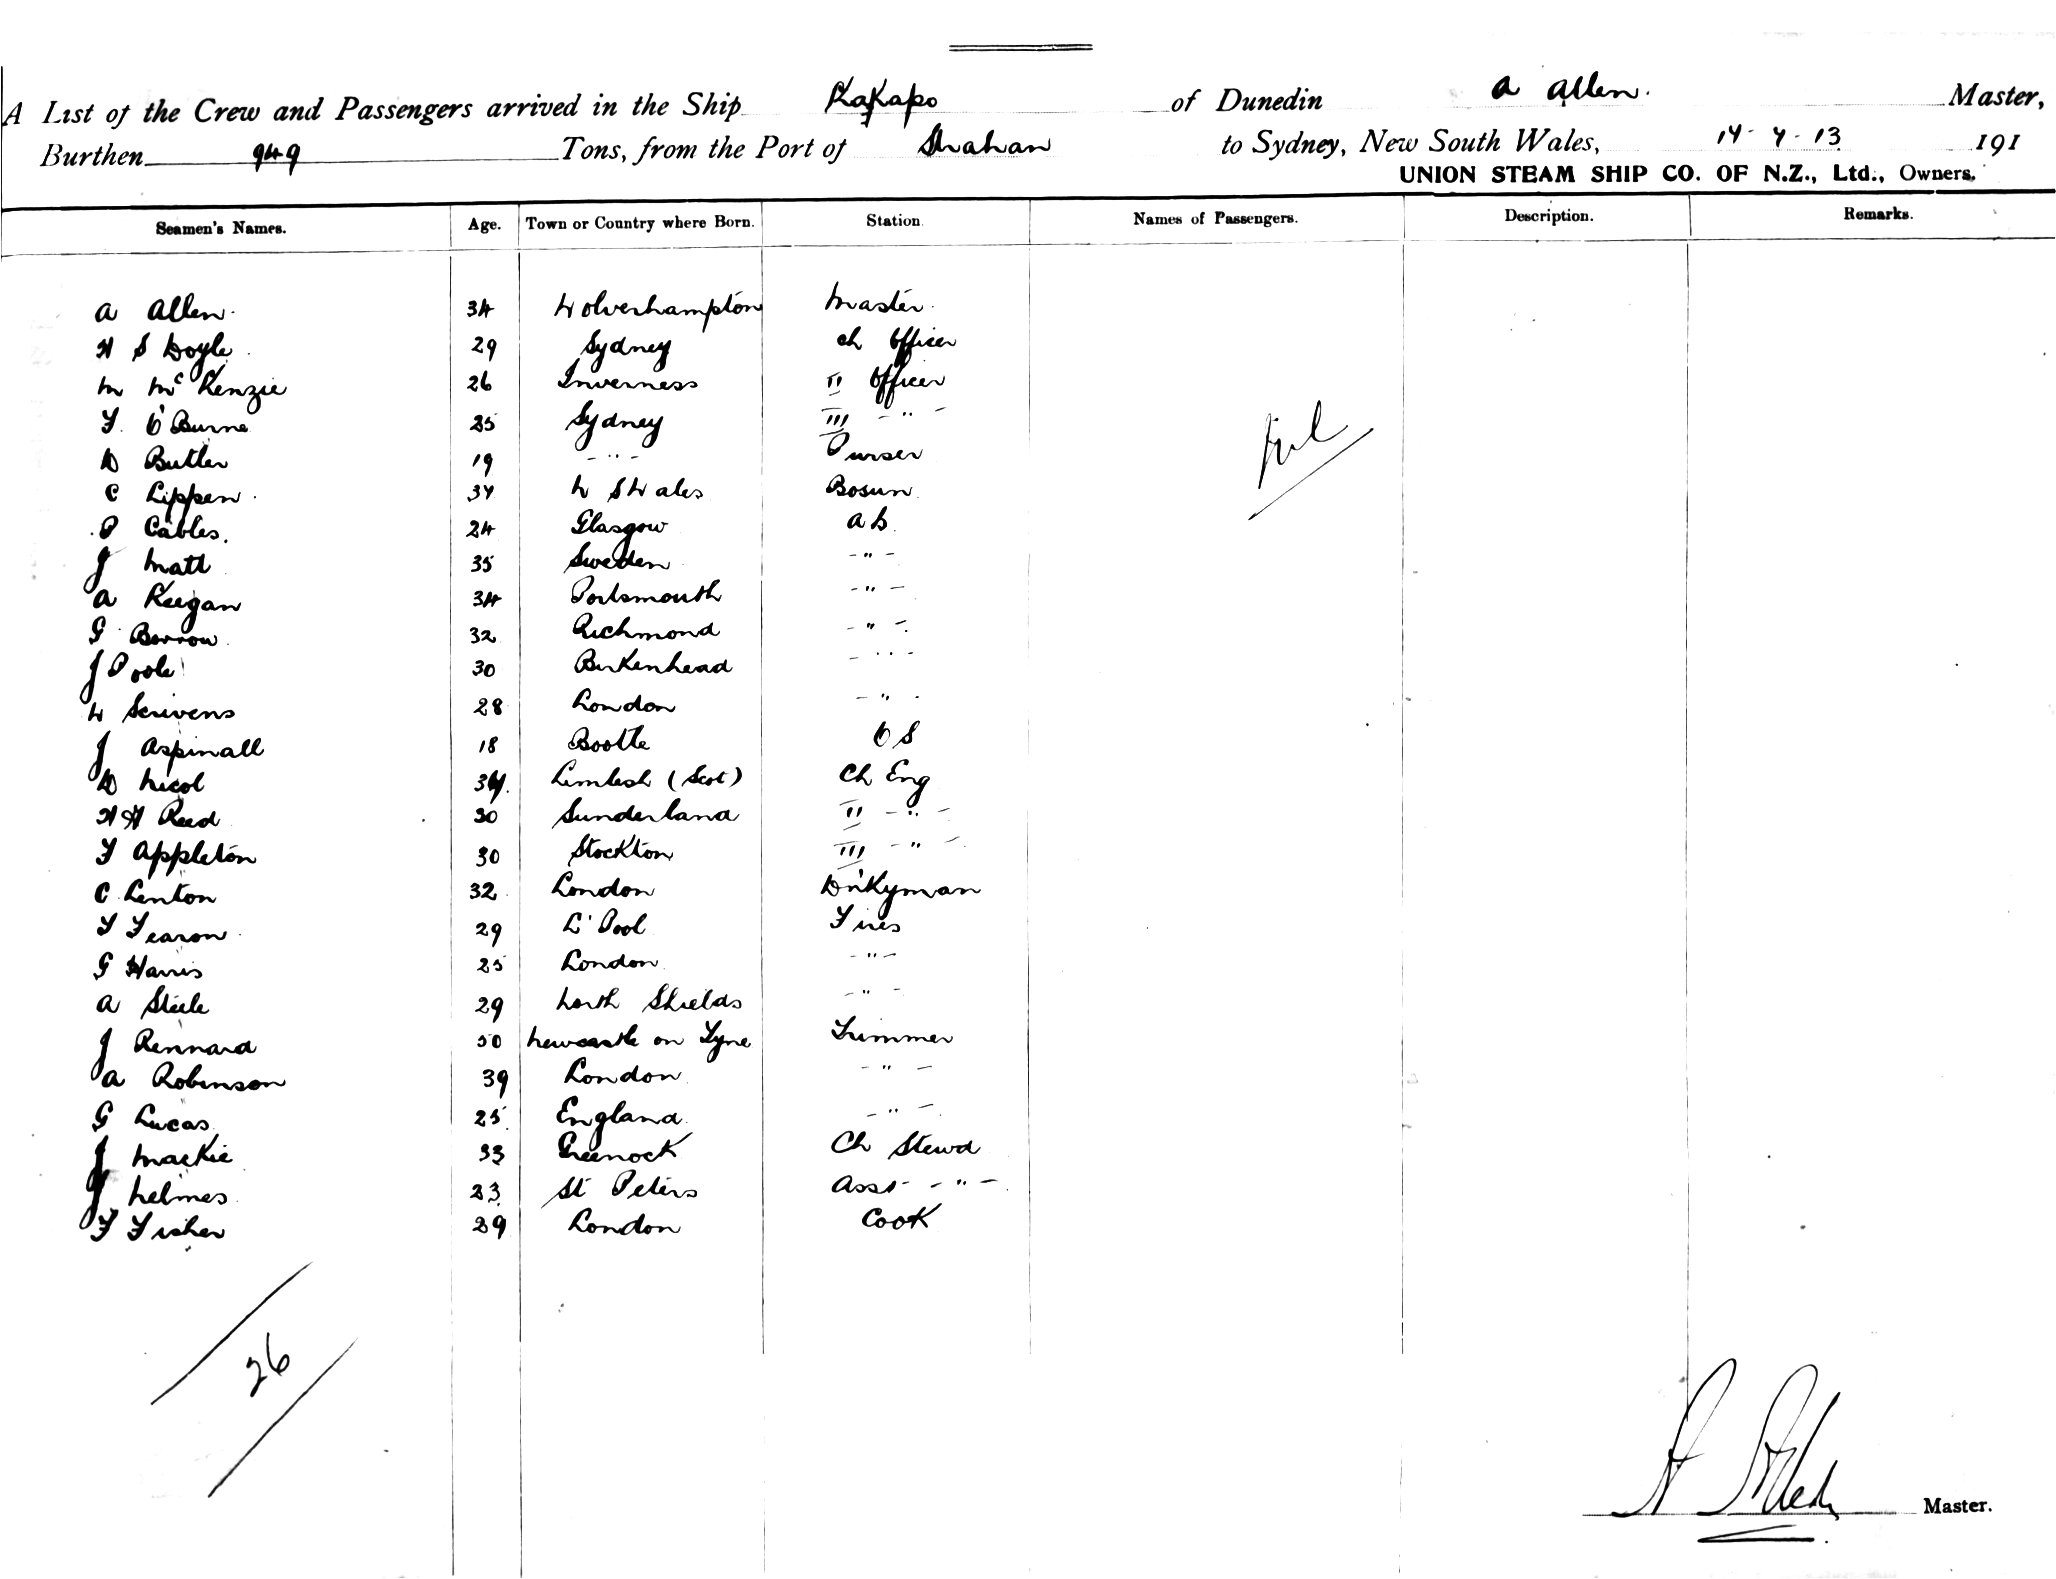 A List of the Crew and Passengers arrived in the Ship Kakapo of Dunedin A Allen. Master,
Burthen 949 Tons, from the Port of Strahan to Sydney, New South Wales, 14-7-13 191
UNION STEAM SHIP CO. OF N.Z., Ltd., Owners.
Seamen's Names. Age. Town or Country where Born. Station. Names of Passengers. Description. Remarks.
A Allen. 34 Wolverhampton Master.
H S Doyle. 29 Sydney Ch Officer
M McKenzie 26 Inverness II Officer
F. O'Burne 25 Sydney III - " -
D Butler 19 - " - Purser
Nil
C Lippen. 34 N S Wales Bosun
P Cables. 24 Glasgow A B.
J Matt 35 Sweden - " -
A Keegan 34 Portsmouth - " -
G Borrow 32 Richmond - " -
J Poole 30 Birkenhead - " -
W Scrivens 28 London - " -
J Aspinall 18 Bootle O S
D Nicol 34 (Scot) Ch Eng
H H Reed 30 Sunderland II - " -
F Appleton 30 Stockton III - " -
C Lenton 32 London D'kyman
F Fearon 29 L'Pool Fires
G Harris 25 London - " -
A Steele 29 North Shields - " -
J Rennard 50 Newcastle on Tyne Trimmer
A Robinson 39 London - " -
G Lucas 25 England - " -
J Mackie 33 Greenock Ch Stewd
J Nelmes 23 St Peters Asst - " -
F Fisher 29 London Cook
26
A Allen Master.